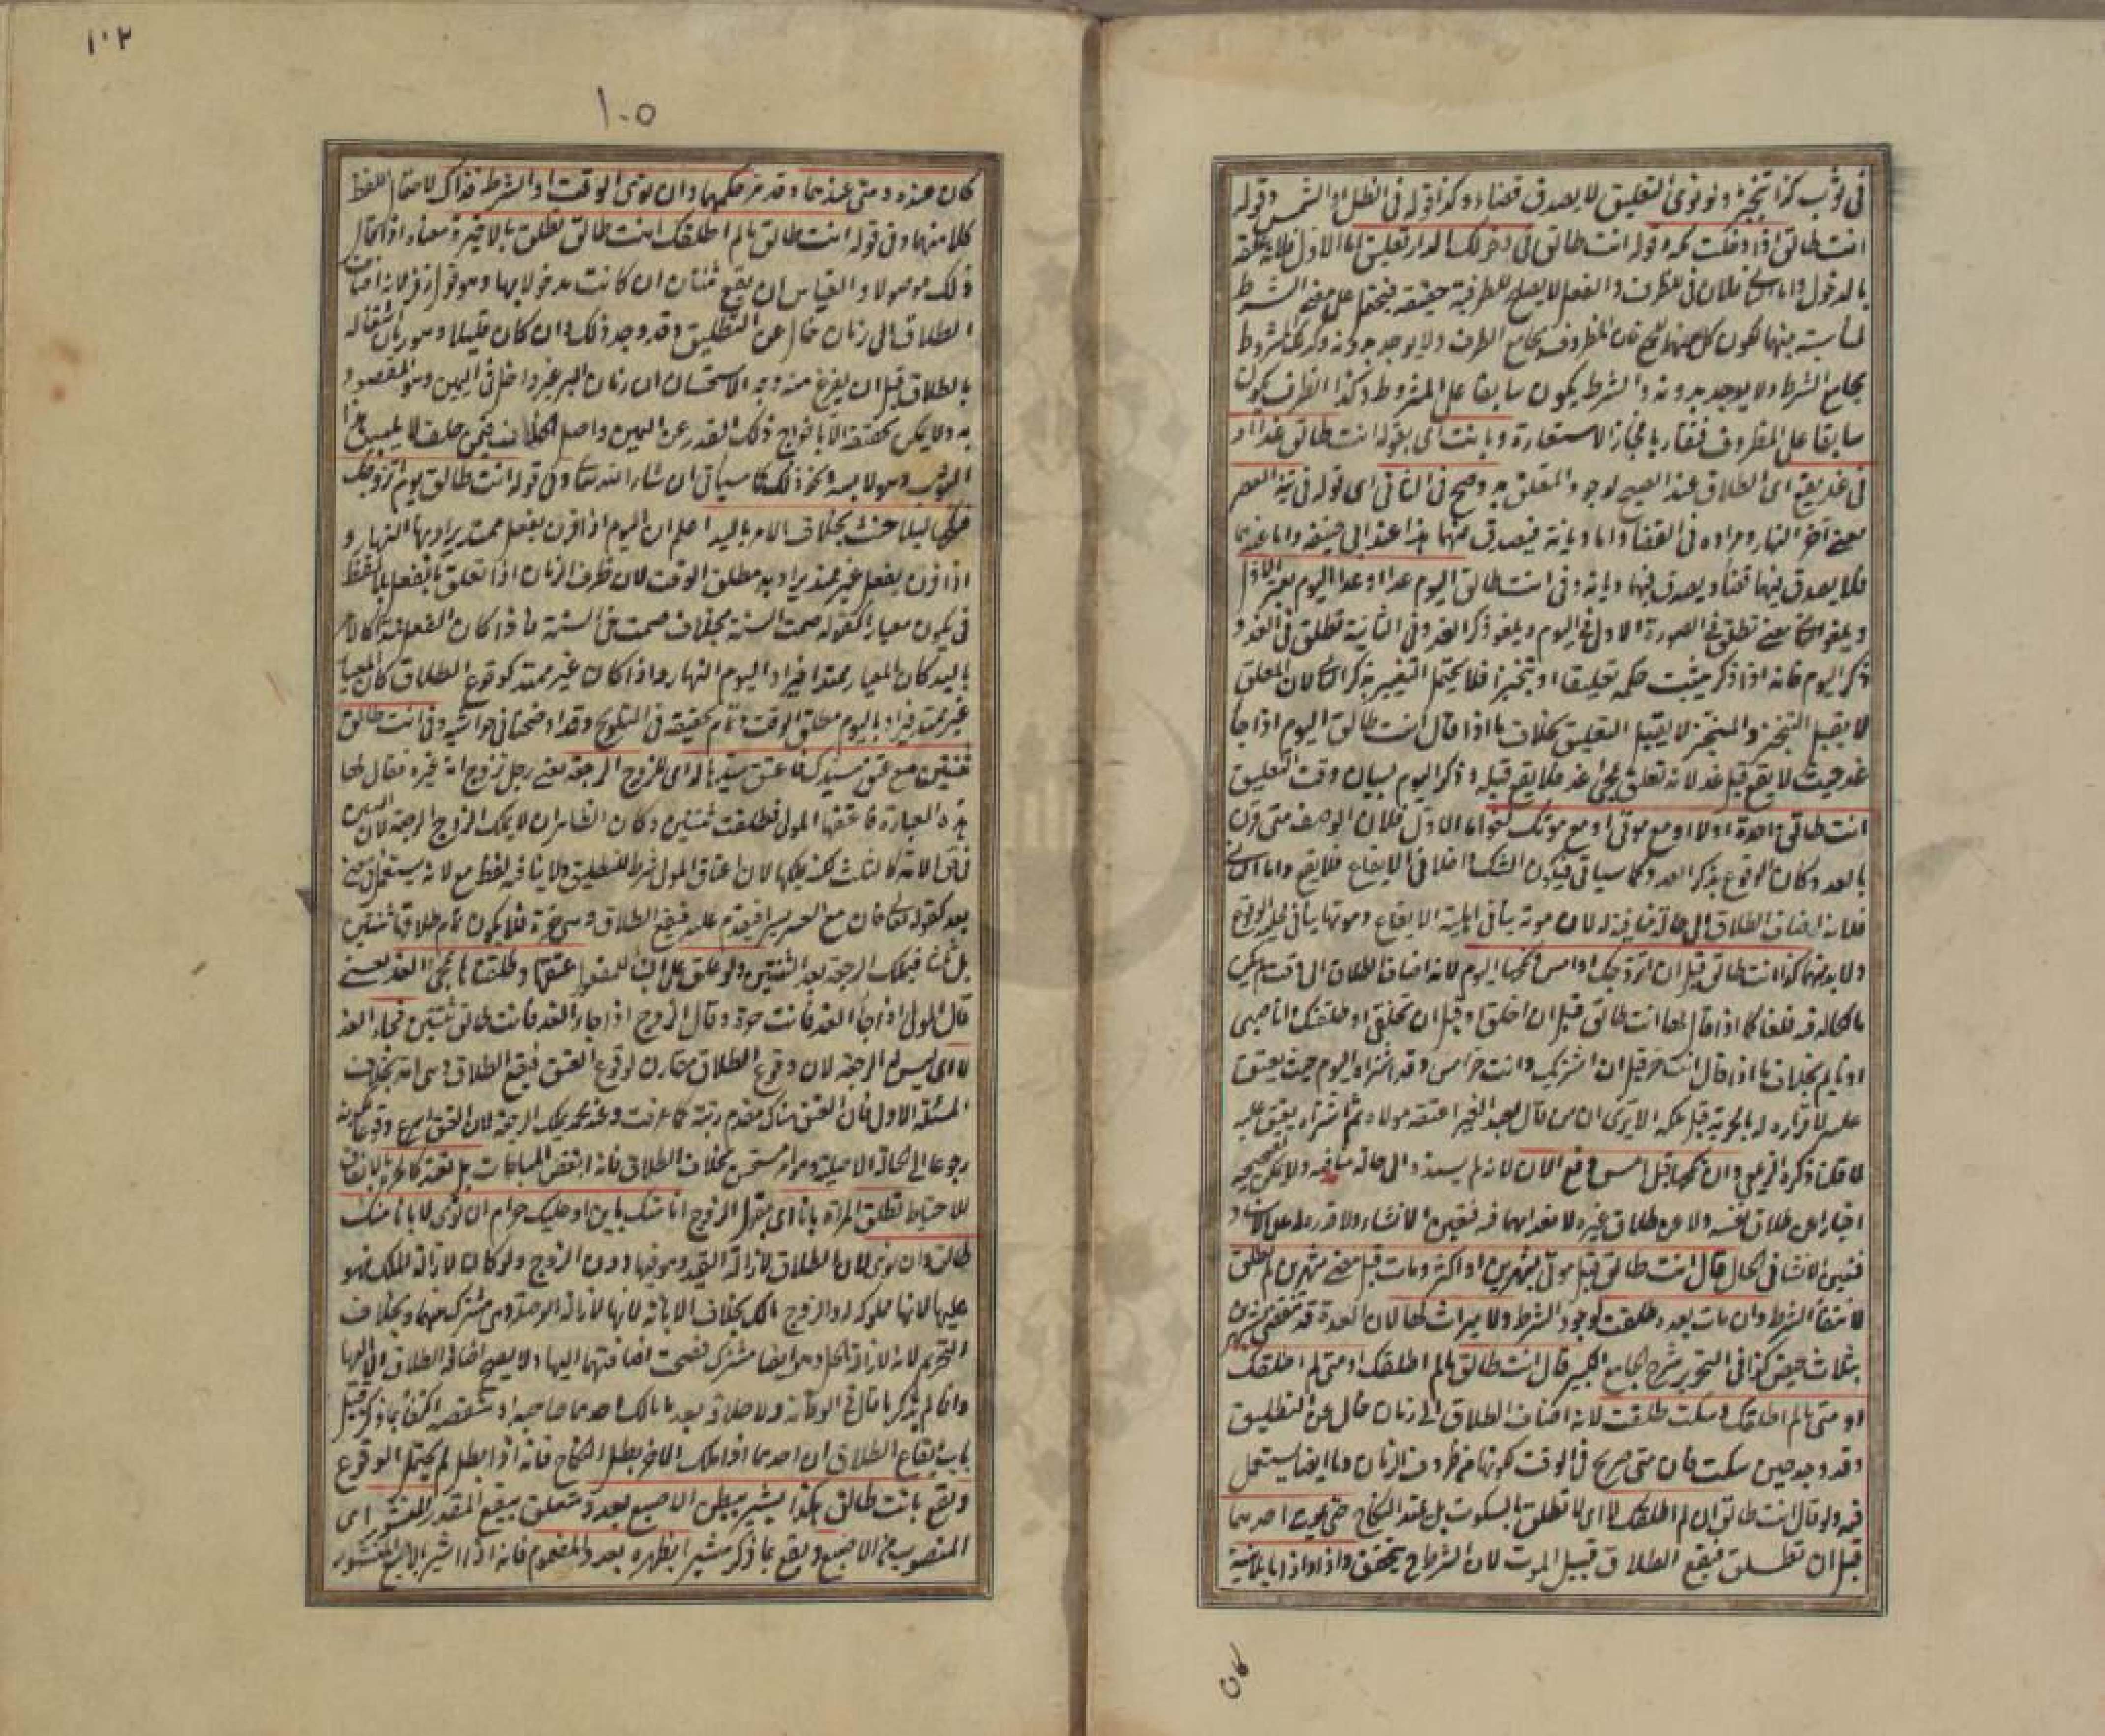 في ثوب كذا تنجيز ولو نوى التعليق لا يصدق قضاء وكذا قوله في الظل او الشمس وقوله
انت طالق اذا دخلت مكة وقوله انت طالق في دخولك الدار تعليق اما الاول فلانه علقه
بالدخول واما الثاني فلان في للظرف والفعل لا يصلح للظرفية حقيقة فيحمل على معنى الشرط
لمناسبة بينهما لكون كل منهما للجمع فان المظروف يجامع الظرف ولا يوجد بدونه وكذلك المشروط
يجامع الشرط ولا يوجد بدونه والشرط يكون سابقا على المشروط وكذا الظرف يكون
سابقا على المظروف فتقاربا فجاز الاستعارة وبانت اي بقوله انت طالق غدا او
في غد يقع اي الطلاق عند الصبح لوجود المعلق به وصح في الثاني اي قوله في نية العصر
يعني آخر النهار ومراده في القضاء واما ديانة فيصدق فيهما هذا عند ابي حنيفة واما عندهما
فلا يصدق فيهما قضاء ويصدق فيهما ديانة وفي انت طالق اليوم غدا او غدا اليوم يعتبر الاول
ويلغو الثاني يعني تطلق في الصورة الاولى في اليوم ويلغو ذكر الغد وفي الثانية تطلق في الغد و
ذكر اليوم فانه اذا ذكر يثبت حكمه تعليقا او تنجيزا فلا يحتمل التغيير بذكر الثاني لان المعلق
لا يقبل التنجيز والمنجز لا يقبل التعليق بخلاف ما اذا قال انت طالق اليوم اذا جاء
غد حيث لا يقع قبل غد لانه تعلق بمجئ غد فلا يقع قبله وذكر اليوم لبيان وقت التعليق
انت طالق واحدة اولا او مع موتي او مع موتك لغو اما الاول فلان الوصف متى قرن
بالعدد كان الوقوع بذكر العدد كما سياتي فيكون الشك داخلا في الايقاع فلا يقع واما الثاني
فلانه اضاف الطلاق الى حالة منافية له لان موته ينافي اهلية الايقاع وموتها ينافي محلية الوقوع
ولا بد منهما كذا انت طالق قبل ان اتزوجك او امس ونكحها اليوم لانه اضاف الطلاق الى وقت لم يكن
مالكا له فيه فلغا كما اذا قال لها انت طالق قبل ان اخلق او قبل ان تخلقي او طلقتك وانا صبي
او نائم بخلاف ما اذا قال انت حر قبل ان اشتريك وانت حر امس وقد اشتراه اليوم حيث يعتق
عليه لاقراره له بالحرية قبل ملكه الا يرى ان من قال لعبد الغير اعتقه مولاه ثم اشتراه يعتق عليه
لما قلنا ذكره الزيلعي وان نكحها قبل امس وقع الآن لانه لم يسنده الى حالة منافية ولا يمكن تصحيحه
اخبارا عن طلاق نفسه ولا عن طلاق غيره لانعدامهما فيه فتعين الانشاء ولا قدرة له على الاسناد
فتعين الانشاء في الحال قال انت طالق قبل موتي بشهرين او اكثر ومات قبل مضي شهرين لم تطلق
لانتفاء الشرط وان مات بعده طلقت لوجود الشرط ولا ميراث لها لان العدة قد تنقضي بشهرين
بثلاث حيض كذا في التحرير شرح الجامع الكبير قال انت طالق ما لم اطلقك او متى لم اطلقك
او متى ما لم اطلقك وسكت طلقت لانه اضاف الطلاق الى زمان خال عن التطليق
وقد وجد حين سكت فان متى صريح في الوقت لكونها من ظروف الزمان وما ايضا يستعمل
فيه ولو قال انت طالق ان لم اطلقك لا اي لا تطلق بالسكوت بل عند النكاح حتى يموت احدهما
قبل ان تطلق فيقع الطلاق قبيل الموت لان الشرط ح يتحقق واذا واذا ما بلا نية
كان
١٠٢
١٠٥
كان عنده ومتى عندهما وقد مر حكمهما وان نوى الوقت او الشرط فذاك لاحتمال اللفظ
كلا منهما وفي قوله انت طالق ما لم اطلقك انت طالق تطلق بالاخيرة معناه اذا قال
ذلك موصولا والقياس ان يقع ثنتان ان كانت مدخولا بها وهو قول زفر لانه اضاف
الطلاق الى زمان خال عن التطليق وقد وجد ذلك وان كان قليلا وهو زمان اشتغاله
بالطلاق قبل ان يفرغ منه وجه الاستحسان ان زمان البر غير داخل في اليمين وهو المقصود
به ولا يمكن تحققه الا باخراج ذلك القدر عن اليمين واصل الخلاف فيمن حلف لا يلبس هذا
الثوب وهو لابسه ونحو ذلك كما سياتي ان شاء الله تعالى وفي قوله انت طالق يوم اتزوجك
فنكحها ليلا حنث بخلاف الامر باليد اعلم ان اليوم اذا قرن بفعل ممتد يراد بها النهار و
اذا قرن بفعل غير ممتد يراد به مطلق الوقت لان ظرف الزمان اذا تعلق بالفعل بلا لفظ
في يكون معيارا كقوله صمت السنة بخلاف صمت في السنة فاذا كان الفعل ممتدا كالامر
باليد كان المعيار ممتدا فيراد اليوم النهار واذا كان غير ممتد كوقوع الطلاق كان المعيار
غير ممتد فيراد باليوم مطلق الوقت وتمام تحقيقه في التلويح وقد اوضحنا في حواشيه وفي انت طالق
ثنتين مع عتق سيدك فاعتق سيدها له اي للزوج الرجعة يعني رجل تزوج امة غيره فقال لها
هذه العبارة فاعتقها المولى فطلقت ثنتين وكان الظاهر ان لا يملك الزوج الرجعة لان الثنتين
في حق الامة كالثلث لكنه يملكها لان اعتاق المولى شرط للتطليق ولا ينافيه لفظ مع لانه يستعمل بمعنى
بعد كقوله تعالى فان مع العسر يسرا فيقدم عليه فيقع الطلاق وهي حرة فلا يكون تمام طلاقها ثنتين
بل ثلثا فيملك الرجعة بعد الثنتين ولو علق على البناء للمفعول عتقها وطلقتاها بمجئ الغد يعني
قال المولى اذا جاء الغد فانت حرة وقال الزوج اذا جاء الغد فانت طالق ثنتين فجاء الغد
لا اي ليس له الرجعة لان وقوع الطلاق مقارن لوقوع العتق فيقع الطلاق وهي امة بخلاف
المسئلة الاولى فان العتق هناك مقدم رتبة كما عرفت وعند محمد يملك الرجعة لان العتق اسرع وقوعا لكونه
رجوعا الى الحالة الاصلية وهو امر مستحسن بخلاف الطلاق فانه ابغض المباحات بل تعتد كالحرة بالاتفاق
للاحتياط تطلق المرأة بانا اي بقول الزوج انا منك باين او عليك حرام ان نوى لا بانا منك
طالق وان نوى لان الطلاق لازالة القيد وهو فيها دون الزوج ولو كان لازالة الملك فهو
عليها لانها مملوكة له والزوج مالك بخلاف الابانة لانها لازالة الوصلة وهي مشترك بينهما وبخلاف
التحريم لانه لازالة الحل وهو ايضا مشترك فصحت اضافتهما اليها ولا يصح اضافة الطلاق الا اليها
وانما لم يذكر ما قال في الوقاية ولا طلاق بعد ما ملك احدهما صاحبه او شقصه اكتفاء بما ذكر قبيل
باب ايقاع الطلاق ان احدهما اذا ملك الآخر بطل النكاح فانه اذا بطل لم يحتمل الوقوع
ويقع بانت طالق هكذا يشير ببطن الاصبع بعدده متعلق بيقع المقدر المنشور اي
المنصوب من الاصبع ويقع بما ذكر مشيرا بظهره بعدد المضموم فانه اذا اشير بالاصبع المنشورة